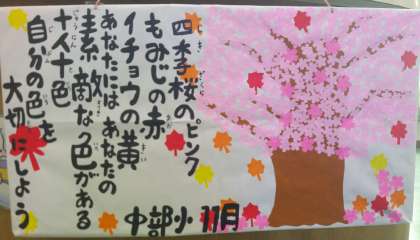 四季桜のピンク
もみじの赤
イチョウの黄
あなたには あなたの
素敵な色がある
十人十色
自分の色を
大切にしよう
中部小 11月